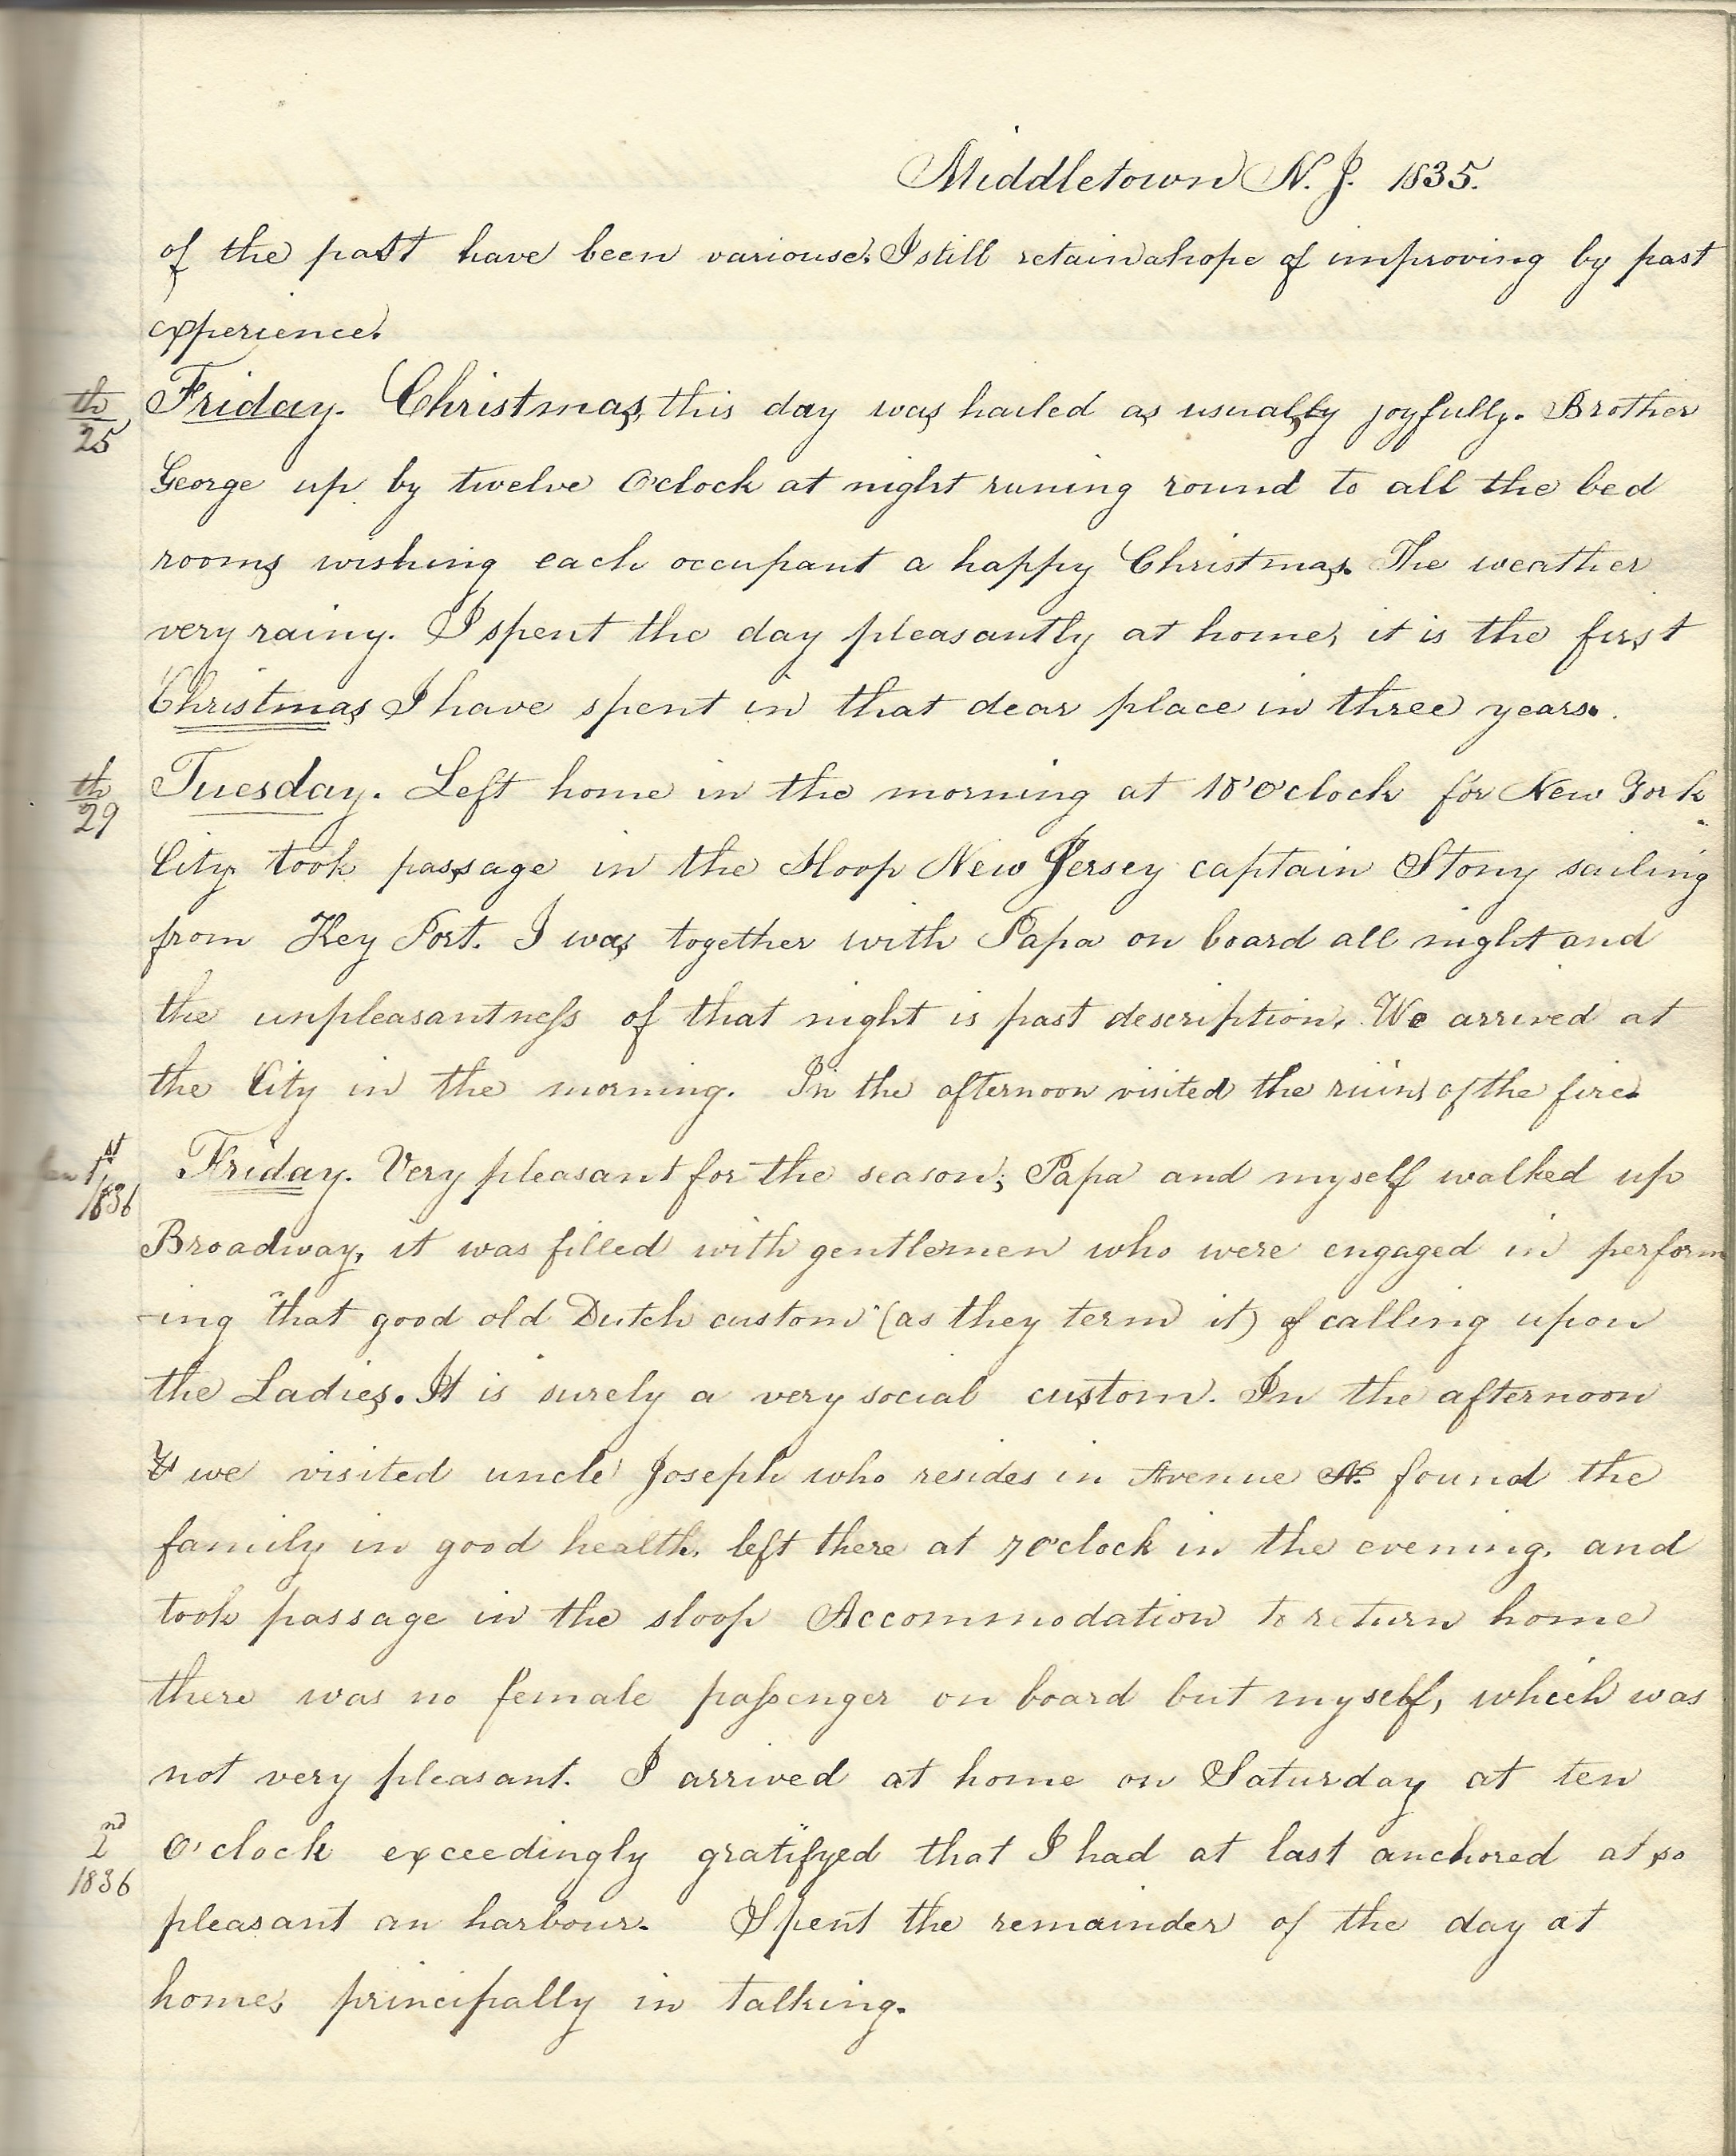 Middletown N. J. 1835.
of the past have been variouse. I still retain a hope of improving by past
experience.
th
25
Friday. Christmas, this day was hailed as usually joyfully. Brother
George up by twelve O'clock at night runing round to all the bed
rooms wishing each occupant a happy Christmas. The weather
very rainy. I spent the day pleasantly at home, it is the first
Christmas I have spent in that dear place in three years.
th
29
Tuesday. Left home in the morning at 10 O'clock for New York
City. took passage in the Sloop New Jersey captain Stony sailing
from Key Port. I was together with Papa on board all night and
the unpleasantness of that night is past description. We arrived at
the City in the morning. In the afternoon visited the ruins of the fire.
1st
1836
Friday. Very pleasant for the season; Papa and myself walked up
Broadway, it was filled with gentlemen who were engaged in perform
-ing "that good old Dutch custom" (as they term it) of calling upon
the Ladies. It is surely a very social custom. In the afternoon
we visited uncle Joseph who resides in Avenue found the
family in good health, left there at 7 O'clock in the evening, and
took passage in the sloop Accommodation to return home
there was no female passenger on board but myself, which was
not very pleasant. I arrived at home on Saturday at ten
nd
2
1836
O'clock exceedingly gratifyed that I had at last anchored at so
pleasant an harbour. Spent the remainder of the day at
home, principally in talking.